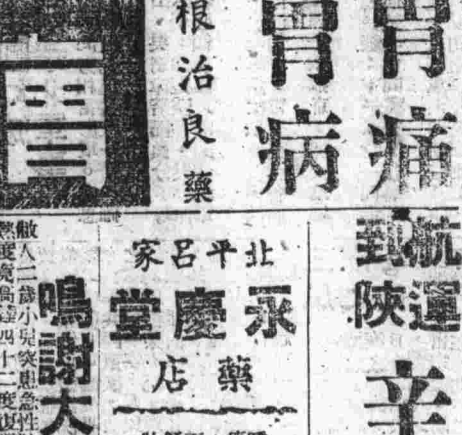 胃痛
胃病
根治良藥
胃
航運
到陝
辛
北平呂家
永慶堂
藥店
鳴謝大
敝人二歲小兒突患急性
熱度竟高達四十二度復